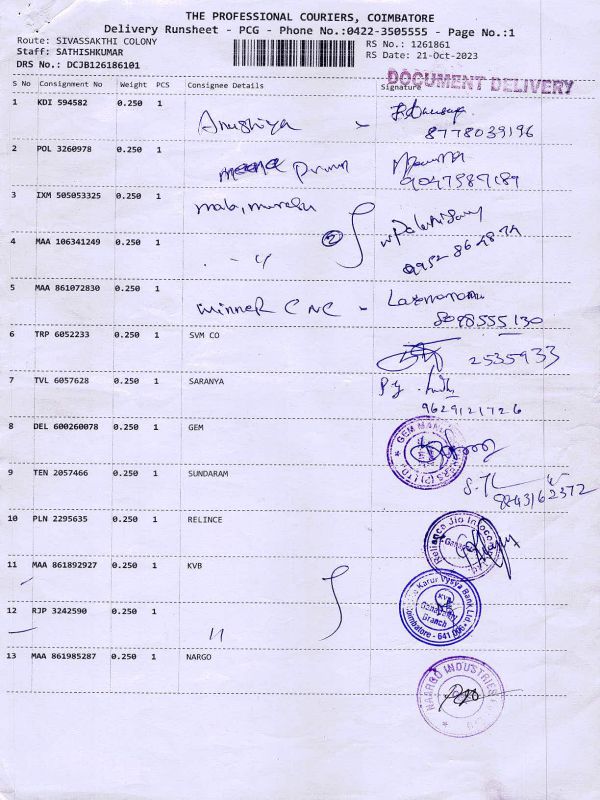 THE PROFESSIONAL COURIERS, COIMBATORE
Delivery Runsheet - PCG - Phone No.:0422-3505555 - Page No.:1
Route: SIVASSAKTHI COLONY
RS No.: 1261861
Staff: SATHISHKUMAR
RS Date: 21-Oct-2023
DRS No.: DCJB126186101
DOCUMENT DELIVERY
S No Consignment No Weight PCS Consignee Details Signature
1 KDI 594582 0.250 1 Anushiya
8778039196
2 POL 3260978 0.250 1
9047989189
3 IXM 505053325 0.250 1
4 MAA 106341249 0.250 1 - 〃
2
5 MAA 861072830 0.250 1 Winner CNC -
8098555130
6 TRP 6052233 0.250 1 SVM CO 2535933
7 TVL 6057628 0.250 1 SARANYA
9629121726
8 DEL 600260078 0.250 1 GEM
9 TEN 2057466 0.250 1 SUNDARAM
8243162372
10 PLN 2295635 0.250 1 RELINCE
Reliance Jio Infoco
11 MAA 861892927 0.250 1 KVB
Karur Vysya Bank Ltd
KVB
Ganapathy
Branch
Coimbatore - 641 006
12 RJP 3242590 0.250 1 〃
13 MAA 861985287 0.250 1 NARGO
NAARGO INDUSTRIES